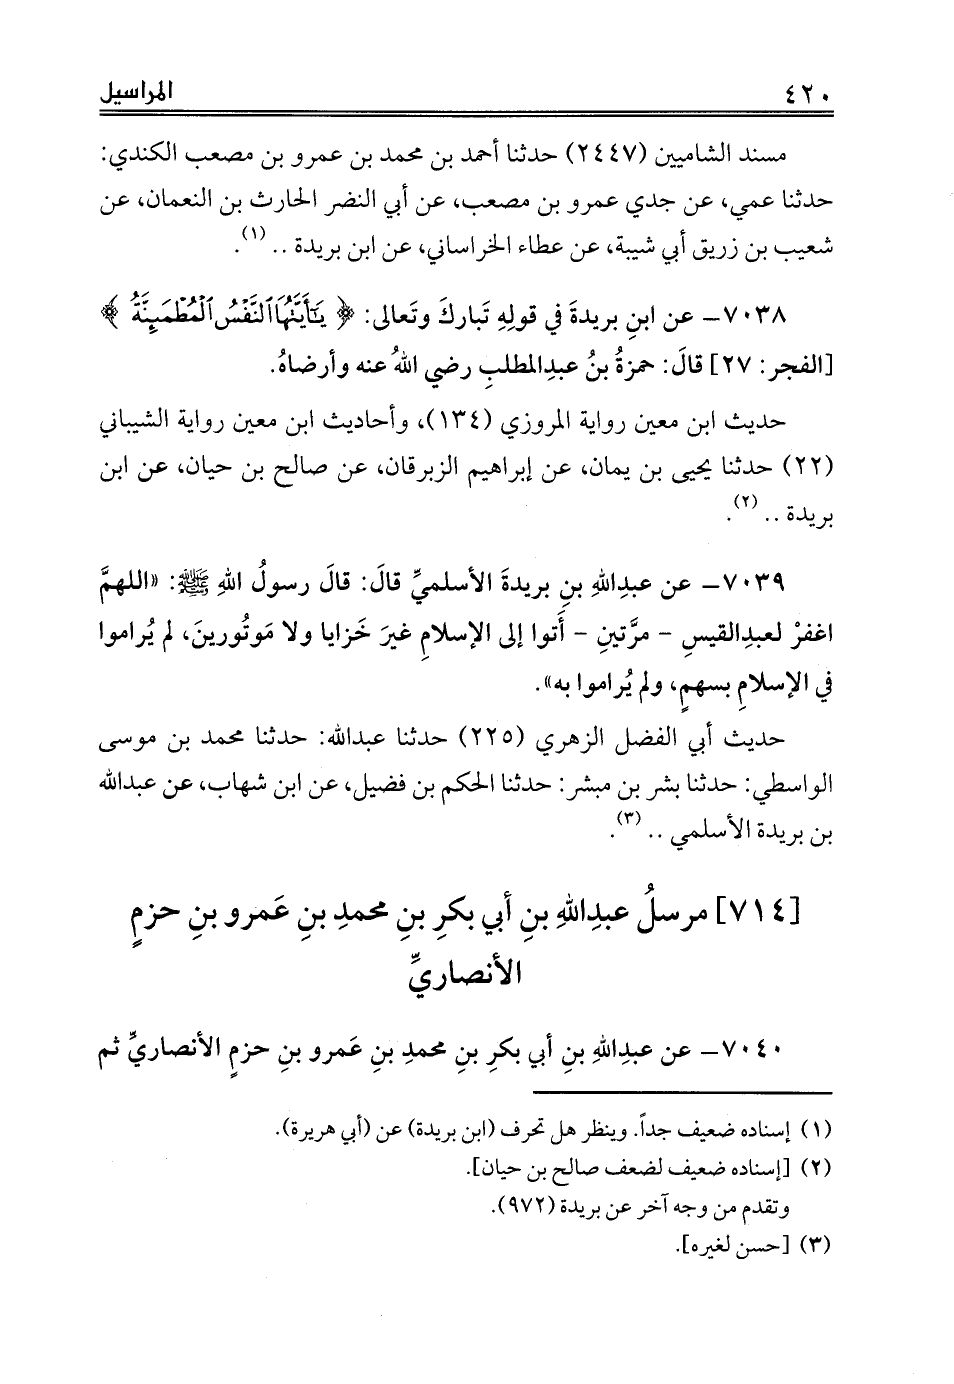 ٤٢٠ المراسيل
مسند الشاميين (٢٤٤٧) حدثنا أحمد بن محمد بن عمرو بن مصعب الكندي:
حدثنا عمي، عن جدي عمرو بن مصعب، عن أبي النضر الحارث بن النعمان، عن
شعيب بن زريق أبي شيبة، عن عطاء الخراساني، عن ابن بريدة .. (١).
٧٠٣٨– عن ابنِ بريدةَ في قولِهِ تَباركَ وتَعالى: ﴿ يَٰٓأَيَّتُهَا ٱلنَّفْسُ ٱلْمُطْمَئِنَّةُ ﴾
[الفجر: ٢٧] قالَ: حمزةُ بنُ عبدِالمطلبِ رضي اللهُ عنه وأرضاهُ.
حديث ابن معين رواية المروزي (١٣٤)، وأحاديث ابن معين رواية الشيباني
(٢٢) حدثنا يحيى بن يمان، عن إبراهيم الزبرقان، عن صالح بن حيان، عن ابن
بريدة .. (٢).
٧٠٣٩– عن عبدِاللهِ بنِ بريدةَ الأسلميِّ قالَ: قالَ رسولُ اللهِ ﷺ: «اللهمَّ
اغفرْ لعبدِالقيسِ - مرَّتينِ - أَتوا إلى الإسلامِ غيرَ خَزايا ولا مَوتُورينَ، لم يُراموا
في الإسلامِ بسهمٍ، ولم يُراموا به».
حديث أبي الفضل الزهري (٢٢٥) حدثنا عبدالله: حدثنا محمد بن موسى
الواسطي: حدثنا بشر بن مبشر: حدثنا الحكم بن فضيل، عن ابن شهاب، عن عبدالله
بن بريدة الأسلمي .. (٣).
[٧١٤] مرسلُ عبدِاللهِ بنِ أبي بكرِ بنِ محمدِ بنِ عَمرو بنِ حزمٍ
الأنصاريِّ
٧٠٤٠– عن عبدِاللهِ بنِ أبي بكرِ بنِ محمدِ بنِ عَمرو بنِ حزمٍ الأنصاريِّ ثم
(١) إسناده ضعيف جداً. وينظر هل تحرف (ابن بريدة) عن (أبي هريرة).
(٢) [إسناده ضعيف لضعف صالح بن حيان].
وتقدم من وجه آخر عن بريدة (٩٧٢).
(٣) [حسن لغيره].